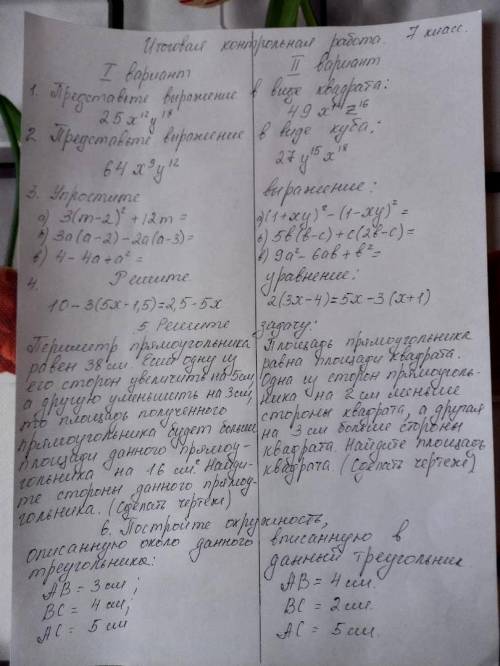 Итоговая контрольная работа. 7 класс.
I вариант
II вариант
1. Представьте выражение в виде квадрата:
25x¹²y¹⁸
49x¹⁴z¹⁶
2. Представьте выражение в виде куба:
64x⁹y¹²
27y¹⁵x¹⁸
3. Упростите выражение:
а) 3(m-2)² + 12m =
б) 3a(a-2) - 2a(a-3) =
в) 4 - 4a + a² =
а) (1+xy)² - (1-xy)² =
б) 5b(b-c) + c(2b-c) =
в) 9a² - 6ab + b² =
4. Решите уравнение:
10 - 3(5x - 1,5) = 2,5 - 5x
2(3x-4) = 5x - 3(x+1)
5. Решите задачу:
Периметр прямоугольника
равен 38 см. Если одну из
его сторон увеличить на 5см,
а другую уменьшить на 3см,
то площадь полученного
прямоугольника будет больше
площади данного прямоу-
гольника на 16 см². Найди-
те стороны данного прямоу-
гольника. (Сделать чертеж)
Площадь прямоугольника
равна площади квадрата.
Одна из сторон прямоуголь-
ника на 2 см меньше
стороны квадрата, а другая
на 3 см больше стороны
квадрата. Найдите площадь
квадрата. (Сделать чертеж)
6. Постройте окружность,
описанную около данного
треугольника:
AB = 3 см;
BC = 4 см;
AC = 5 см
вписанную в
данный треугольник
AB = 4 см.
BC = 2 см.
AC = 5 см.